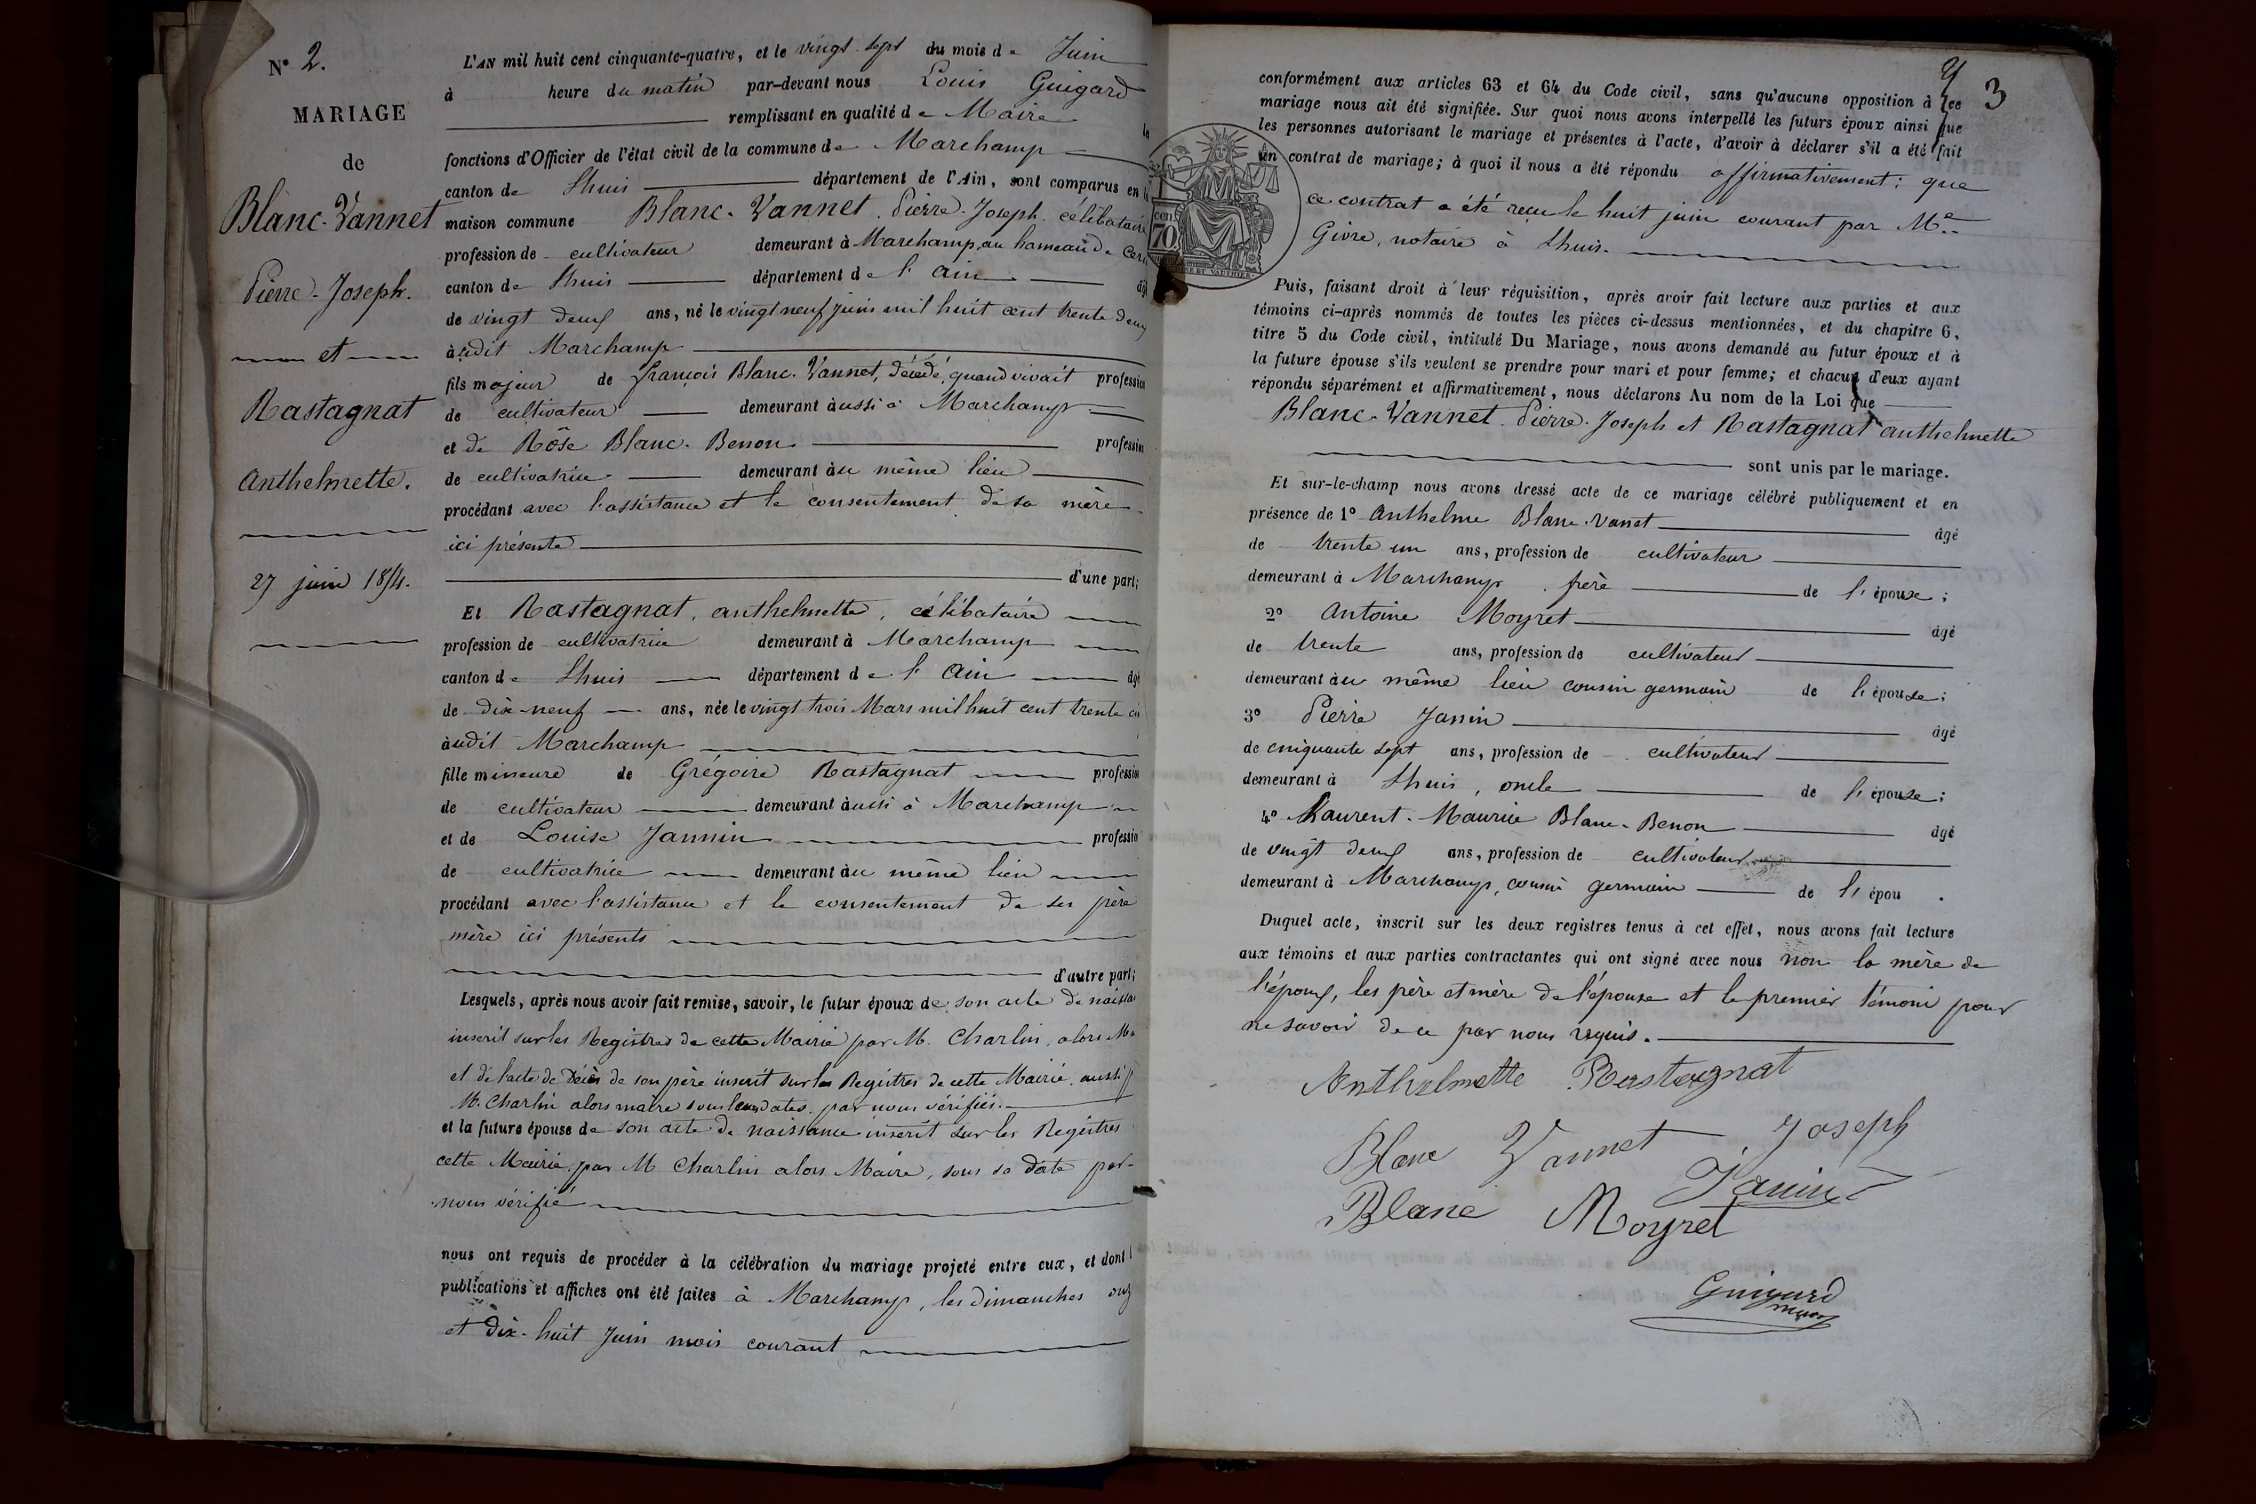 N° 2.
MARIAGE
de
Blanc-Vannet
Pierre-Joseph.
et
Rastagnat
Anthelmette.
27 juin 1854.
L'AN mil huit cent cinquante-quatre, et le vingt-sept du mois de Juin
à heure du matin par-devant nous Louis Guigard
remplissant en qualité de Maire
fonctions d'Officier de l'état civil de la commune de Marchamp
canton de Lhuis département de l'Ain, sont comparus en la
maison commune Blanc-Vannet, Pierre-Joseph, célibataire
profession de cultivateur demeurant à Marchamp, au hameau de
canton de Lhuis département de l'Ain âgé
de vingt deux ans, né le vingt neuf juin mil huit cent trente deux
àudit Marchamp
fils majeur de françois Blanc-Vannet, décédé, quand vivait profession
de cultivateur demeurant àussi à Marchamp
et de Rose Blanc-Benon profession
de cultivatrice demeurant àu même lieu
procédant avec l'assistance et le consentement de sa mère
ici présente
d'une part;
Et Rastagnat, anthelmette, célibataire
profession de cultivatrice demeurant à Marchamp
canton de Lhuis département de l'Ain âgé
de dix-neuf ans, née le vingt trois Mars mil huit cent trente
àudit Marchamp
fille mineure de Grégoire Rastagnat profession
de cultivateur demeurant àussi à Marchamp
et de Louise Jannin profession
de cultivatrice demeurant àu même lieu
procédant avec l'assistance et le consentement de ses père
mère ici présents
d'autre part;
Lesquels, après nous avoir fait remise, savoir, le futur époux de son acte de naissance
inscrit sur les Registres de cette Mairie par M. Charlin, alors
et de l'acte de Décès de son père inscrit sur les Registres de cette Mairie, aussi
M. Charlin alors maire sous leurs dates, par nous vérifiés.
et la future épouse de son acte de naissance inscrit sur les Registres
cette Mairie, par M Charlin alors Maire, sous sa date par
nous vérifié
nous ont requis de procéder à la célébration du mariage projeté entre eux, et dont
publications et affiches ont été faites à Marchamp, les dimanches onze
et dix-huit Juin mois courant
3
conformément aux articles 63 et 64 du Code civil, sans qu'aucune opposition à ce
mariage nous ait été signifiée. Sur quoi nous avons interpellé les futurs époux ainsi que
les personnes autorisant le mariage et présentes à l'acte, d'avoir à déclarer s'il a été fait
un contrat de mariage; à quoi il nous a été répondu affirmativement; que
ce contrat a été reçu le huit juin courant par Me
Givre, notaire à Lhuis.
cen.
70
Puis, faisant droit à leur réquisition, après avoir fait lecture aux parties et aux
témoins ci-après nommés de toutes les pièces ci-dessus mentionnées, et du chapitre 6,
titre 5 du Code civil, intitulé Du Mariage, nous avons demandé au futur époux et à
la future épouse s'ils veulent se prendre pour mari et pour femme; et chacun d'eux ayant
répondu séparément et affirmativement, nous déclarons Au nom de la Loi que
Blanc-Vannet Pierre-Joseph et Rastagnat anthelmette
sont unis par le mariage.
Et sur-le-champ nous avons dressé acte de ce mariage célébré publiquement et en
présence de 1° Anthelme Blanc-Vanet âgé
de trente un ans, profession de cultivateur
demeurant à Marchamp, frère de l'époux;
2° Antoine Moyret âgé
de trente ans, profession de cultivateur
demeurant àu même lieu cousin germain de l'épouse;
3° Pierre Janin âgé
de cinquante sept ans, profession de cultivateur
demeurant à Lhuis, oncle de l'épouse;
4° Laurent-Maurice Blanc-Benon âgé
de vingt deux ans, profession de cultivateur
demeurant à Marchamp, cousin germain de l'épou.
Duquel acte, inscrit sur les deux registres tenus à cet effet, nous avons fait lecture
aux témoins et aux parties contractantes qui ont signé avec nous non la mère de
l'époux, les père et mère de l'épouse et le premier témoin pour
ne savoir de ce par nous requis.
Anthelmette Rastagnat
Blanc Vannet Joseph
Janin
Blanc Moyret
Guigard
maire